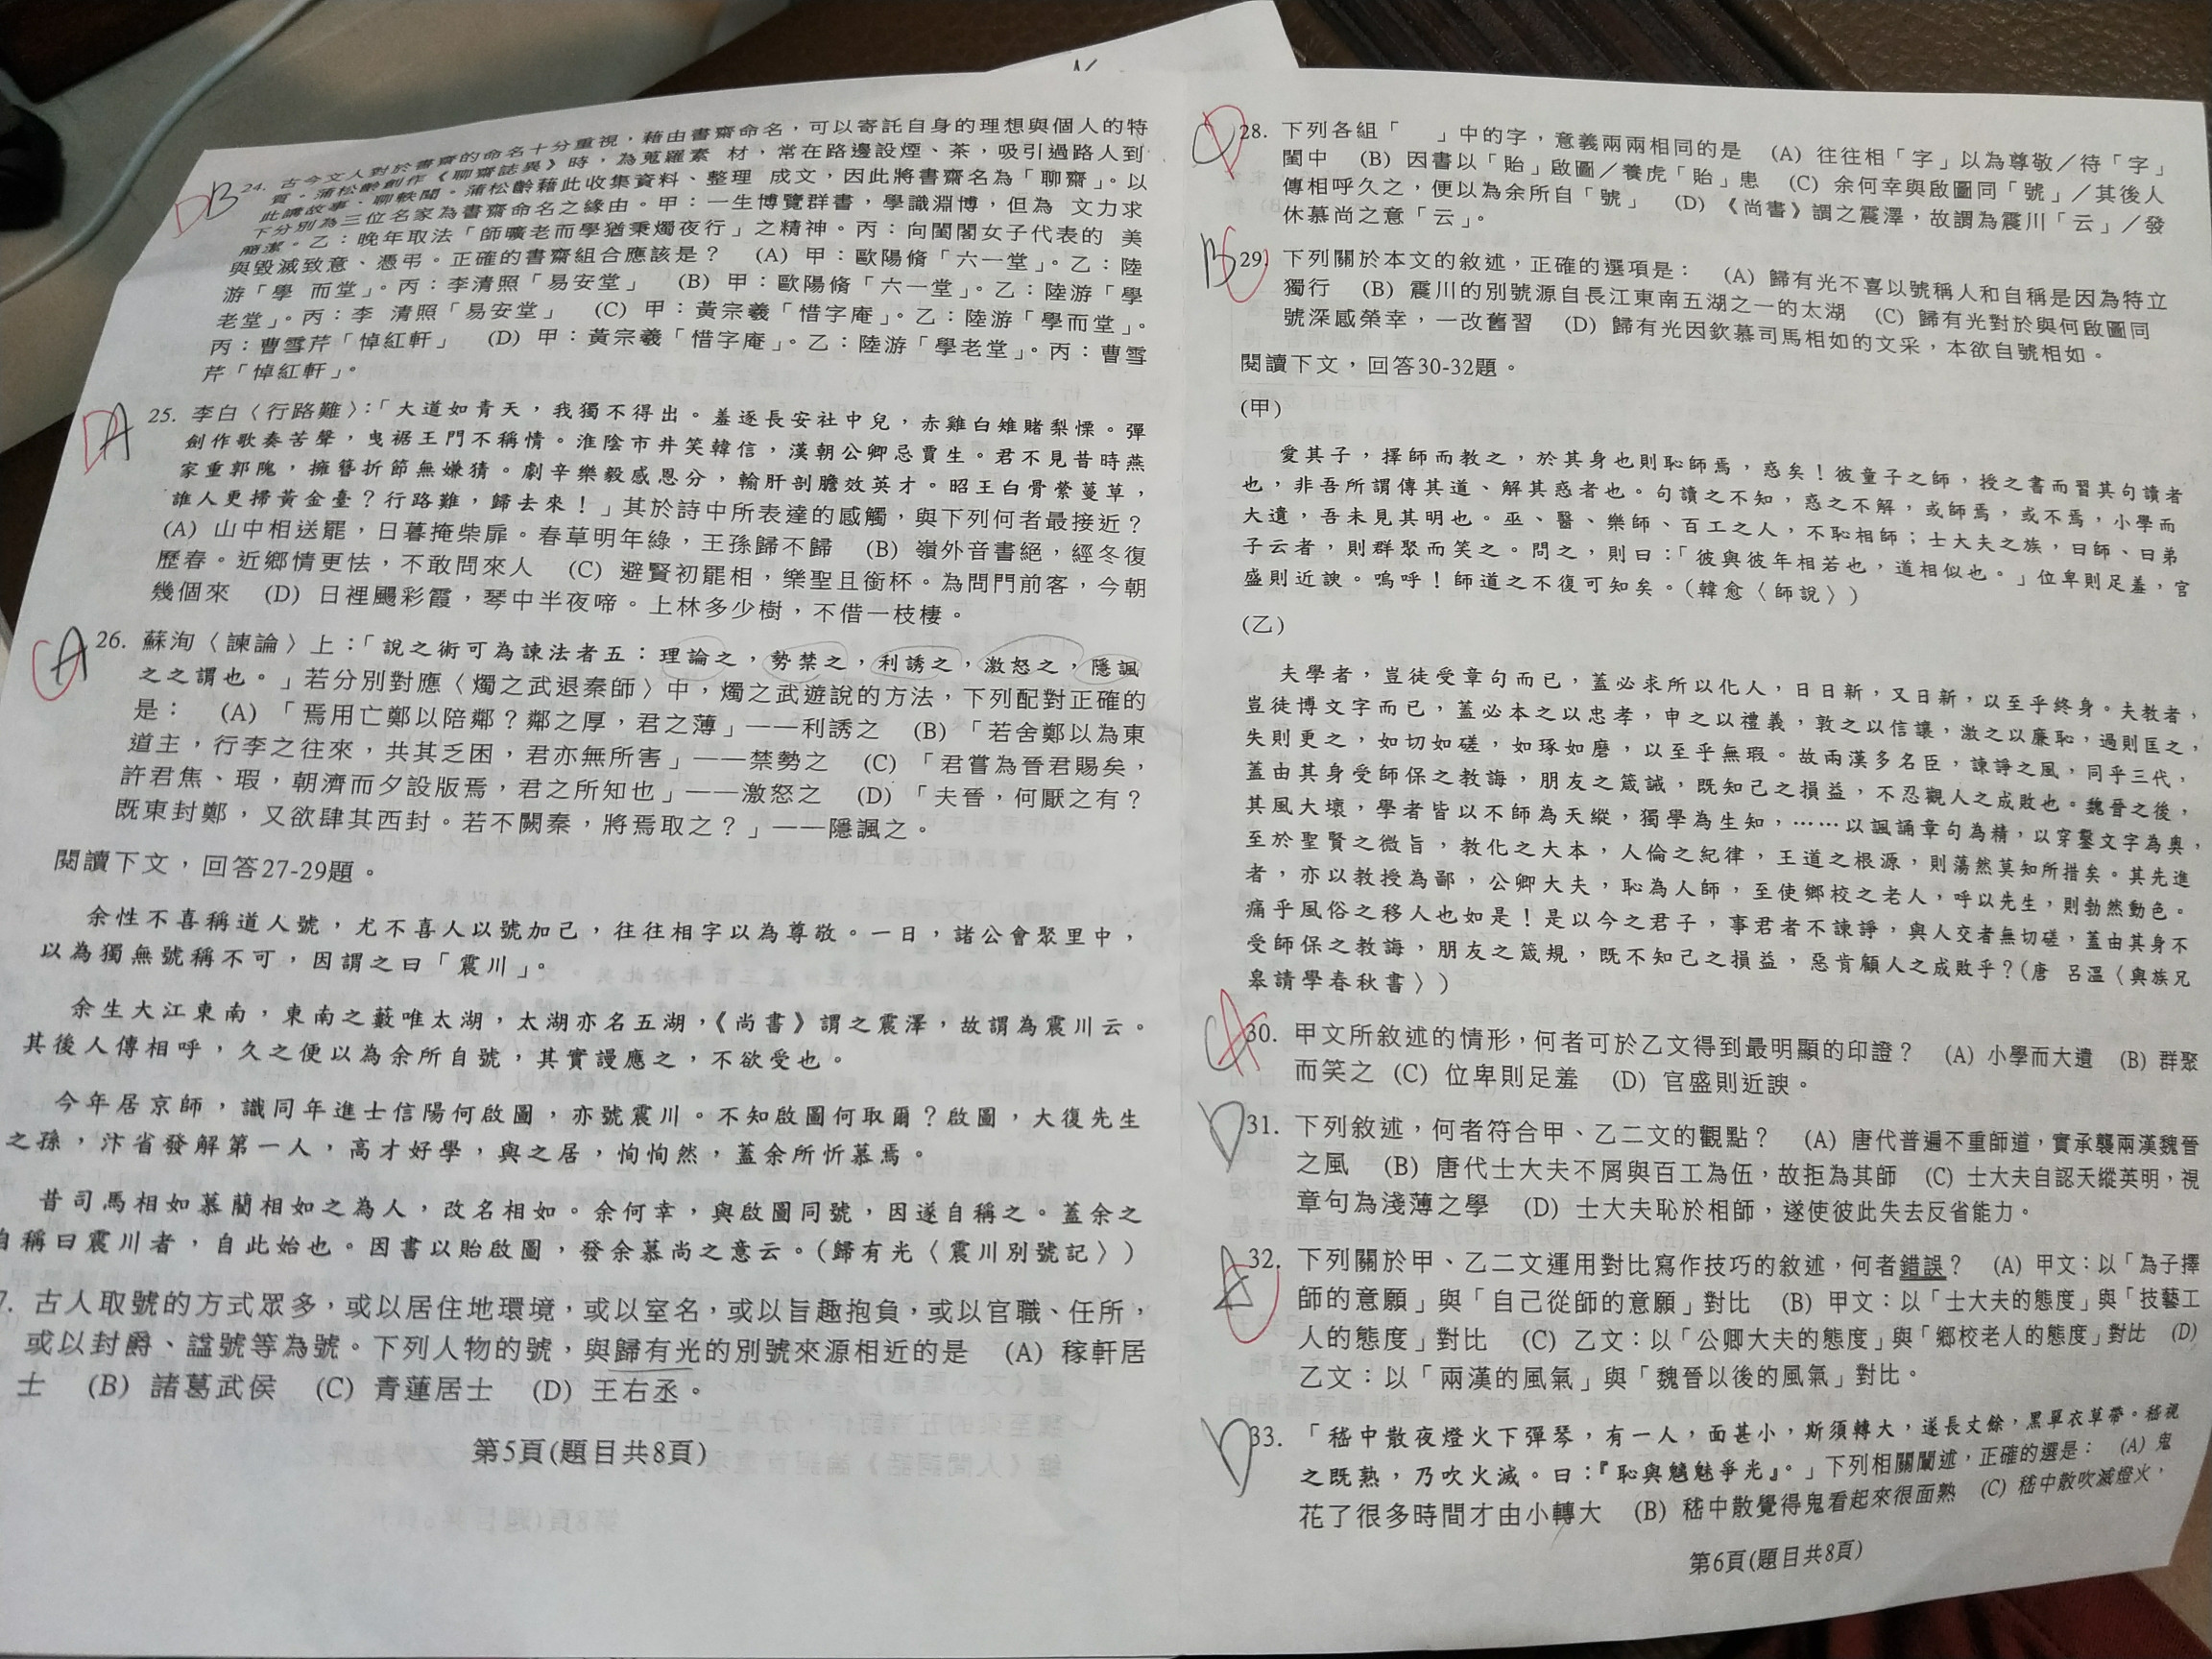 24. 古今文人對於書齋的命名十分重視，藉由書齋命名，可以寄託自身的理想與個人的特
質。蒲松齡創作《聊齋誌異》時，為蒐羅素 材，常在路邊設煙、茶，吸引過路人到
此講故事、聊軼聞。蒲松齡藉此收集資料、整理 成文，因此將書齋名為「聊齋」。以
下分別為三位名家為書齋命名之緣由。甲：一生博覽群書，學識淵博，但為 文力求
簡潔。乙：晚年取法「師曠老而學猶秉燭夜行」之精神。丙：向閨閣女子代表的 美
與毀滅致意、憑弔。正確的書齋組合應該是？ (A) 甲：歐陽脩「六一堂」。乙：陸
游「學 而堂」。丙：李清照「易安堂」 (B) 甲：歐陽脩「六一堂」。乙：陸游「學
老堂」。丙：李 清照「易安堂」 (C) 甲：黃宗羲「惜字庵」。乙：陸游「學而堂」。
丙：曹雪芹「悼紅軒」 (D) 甲：黃宗羲「惜字庵」。乙：陸游「學老堂」。丙：曹雪
芹「悼紅軒」。
DB
25. 李白〈行路難〉：「大道如青天，我獨不得出。羞逐長安社中兒，赤雞白雉賭梨慄。彈
劍作歌奏苦聲，曳裾王門不稱情。淮陰市井笑韓信，漢朝公卿忌賈生。君不見昔時燕
家重郭隗，擁篲折節無嫌猜。劇辛樂毅感恩分，輸肝剖膽效英才。昭王白骨縈蔓草，
誰人更掃黃金臺？行路難，歸去來！」其於詩中所表達的感觸，與下列何者最接近？
(A) 山中相送罷，日暮掩柴扉。春草明年綠，王孫歸不歸 (B) 嶺外音書絕，經冬復
歷春。近鄉情更怯，不敢問來人 (C) 避賢初罷相，樂聖且銜杯。為問門前客，今朝
幾個來 (D) 日裡颺彩霞，琴中半夜啼。上林多少樹，不借一枝棲。
DA
26. 蘇洵〈諫論〉上：「說之術可為諫法者五：理論之，勢禁之，利誘之，激怒之，隱諷
之之謂也。」若分別對應〈燭之武退秦師〉中，燭之武遊說的方法，下列配對正確的
是： (A) 「焉用亡鄭以陪鄰？鄰之厚，君之薄」——利誘之 (B) 「若舍鄭以為東
道主，行李之往來，共其乏困，君亦無所害」——禁勢之 (C) 「君嘗為晉君賜矣，
許君焦、瑕，朝濟而夕設版焉，君之所知也」——激怒之 (D) 「夫晉，何厭之有？
既東封鄭，又欲肆其西封。若不闕秦，將焉取之？」——隱諷之。
CA
閱讀下文，回答27-29題。
余性不喜稱道人號，尤不喜人以號加己，往往相字以為尊敬。一日，諸公會聚里中，
以為獨無號稱不可，因謂之曰「震川」。
余生大江東南，東南之藪唯太湖，太湖亦名五湖，《尚書》謂之震澤，故謂為震川云。
其後人傳相呼，久之便以為余所自號，其實謾應之，不欲受也。
今年居京師，識同年進士信陽何啟圖，亦號震川。不知啟圖何取爾？啟圖，大復先生
之孫，汴省發解第一人，高才好學，與之居，恂恂然，蓋余所忻慕焉。
昔司馬相如慕藺相如之為人，改名相如。余何幸，與啟圖同號，因遂自稱之。蓋余之
自稱曰震川者，自此始也。因書以貽啟圖，發余慕尚之意云。（歸有光〈震川別號記〉）
7. 古人取號的方式眾多，或以居住地環境，或以室名，或以旨趣抱負，或以官職、任所，
或以封爵、諡號等為號。下列人物的號，與歸有光的別號來源相近的是 (A) 稼軒居
士 (B) 諸葛武侯 (C) 青蓮居士 (D) 王右丞。
第5頁(題目共8頁)
28. 下列各組「　」中的字，意義兩兩相同的是 (A) 往往相「字」以為尊敬／待「字」
閨中 (B) 因書以「貽」啟圖／養虎「貽」患 (C) 余何幸與啟圖同「號」／其後人
傳相呼久之，便以為余所自「號」 (D) 《尚書》謂之震澤，故謂為震川「云」／發
休慕尚之意「云」。
CD
29. 下列關於本文的敘述，正確的選項是： (A) 歸有光不喜以號稱人和自稱是因為特立
獨行 (B) 震川的別號源自長江東南五湖之一的太湖 (C) 歸有光對於與何啟圖同
號深感榮幸，一改舊習 (D) 歸有光因欽慕司馬相如的文采，本欲自號相如。
BC
閱讀下文，回答30-32題。
(甲)
愛其子，擇師而教之，於其身也則恥師焉，惑矣！彼童子之師，授之書而習其句讀者
也，非吾所謂傳其道、解其惑者也。句讀之不知，惑之不解，或師焉，或不焉，小學而
大遺，吾未見其明也。巫、醫、樂師、百工之人，不恥相師；士大夫之族，曰師、曰弟
子云者，則群聚而笑之。問之，則曰：「彼與彼年相若也，道相似也。」位卑則足羞，官
盛則近諛。嗚呼！師道之不復可知矣。（韓愈〈師說〉）
(乙)
夫學者，豈徒受章句而已，蓋必求所以化人，日日新，又日新，以至乎終身。夫教者，
豈徒博文字而已，蓋必本之以忠孝，申之以禮義，敦之以信讓，激之以廉恥，過則匡之，
失則更之，如切如磋，如琢如磨，以至乎無瑕。故兩漢多名臣，諫諍之風，同乎三代，
蓋由其身受師保之教誨，朋友之箴誡，既知己之損益，不忍觀人之成敗也。魏晉之後，
其風大壞，學者皆以不師為天縱，獨學為生知，……以諷誦章句為精，以穿鑿文字為奧，
至於聖賢之微旨，教化之大本，人倫之紀律，王道之根源，則蕩然莫知所措矣。其先進
者，亦以教授為鄙，公卿大夫，恥為人師，至使鄉校之老人，呼以先生，則勃然動色。
痛乎風俗之移人也如是！是以今之君子，事君者不諫諍，與人交者無切磋，蓋由其身不
受師保之教誨，朋友之箴規，既不知己之損益，惡肯顧人之成敗乎？（唐 呂溫〈與族兄
皋請學春秋書〉）
30. 甲文所敘述的情形，何者可於乙文得到最明顯的印證？ (A) 小學而大遺 (B) 群聚
而笑之 (C) 位卑則足羞 (D) 官盛則近諛。
CA
31. 下列敘述，何者符合甲、乙二文的觀點？ (A) 唐代普遍不重師道，實承襲兩漢魏晉
之風 (B) 唐代士大夫不屑與百工為伍，故拒為其師 (C) 士大夫自認天縱英明，視
章句為淺薄之學 (D) 士大夫恥於相師，遂使彼此失去反省能力。
D
32. 下列關於甲、乙二文運用對比寫作技巧的敘述，何者錯誤？ (A) 甲文：以「為子擇
師的意願」與「自己從師的意願」對比 (B) 甲文：以「士大夫的態度」與「技藝工
人的態度」對比 (C) 乙文：以「公卿大夫的態度」與「鄉校老人的態度」對比 (D)
乙文：以「兩漢的風氣」與「魏晉以後的風氣」對比。
33. 「嵇中散夜燈火下彈琴，有一人，面甚小，斯須轉大，遂長丈餘，黑單衣草帶。嵇視
之既熟，乃吹火滅。曰：『恥與魑魅爭光』。」下列相關闡述，正確的選是： (A) 鬼
花了很多時間才由小轉大 (B) 嵇中散覺得鬼看起來很面熟 (C) 嵇中散吹滅燈火，
D
第6頁(題目共8頁)